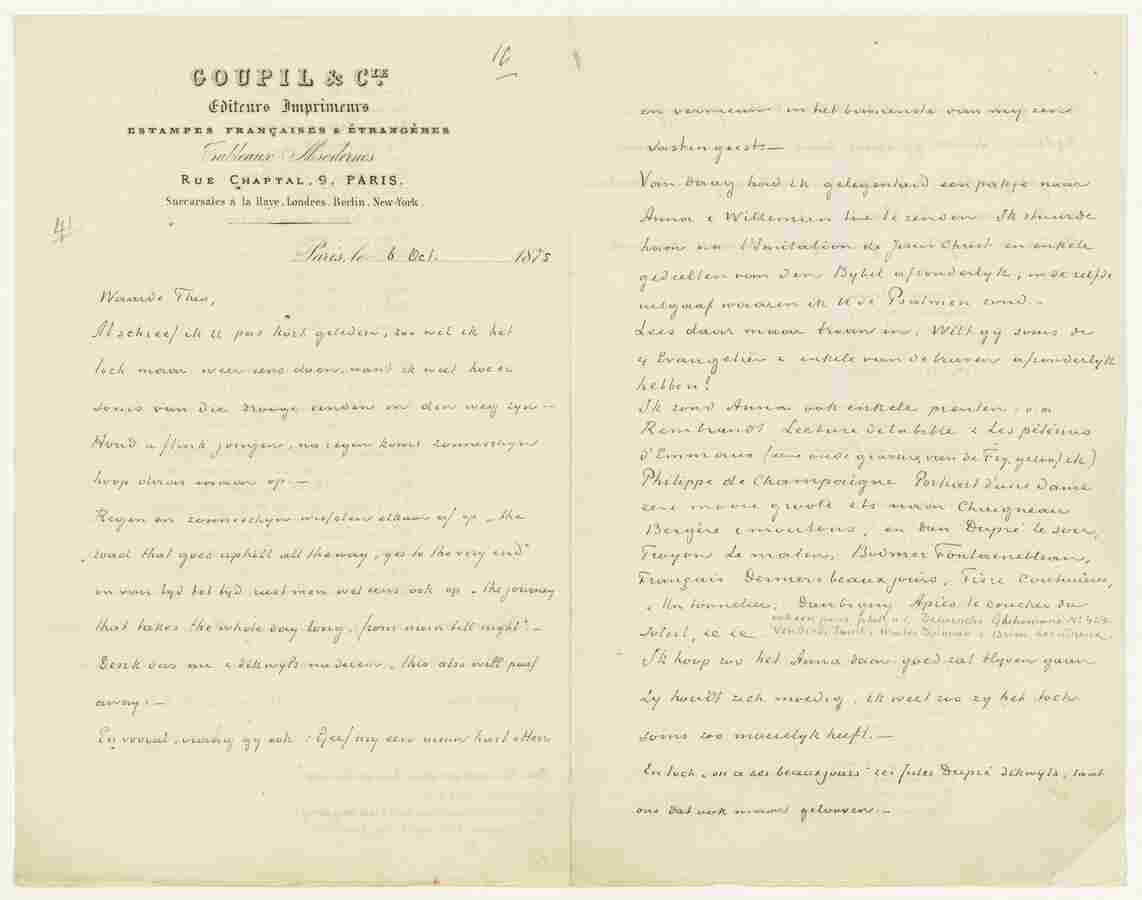 16
GOUPIL & CIE
Editeurs Imprimeurs
ESTAMPES FRANÇAISES & ÉTRANGÈRES
Tableaux Modernes
RUE CHAPTAL, 9, PARIS.
Succursales à la Haye, Londres, Berlin, New-York.
Paris, le 6 Oct. 1875
Waarde Theo,
Al schreef ik U pas kort geleden, zoo wil ik het
toch maar weer eens doen, want ik weet hoe er
soms van die droge einden on den weg zijn —
Houd u flink jongen, na regen komt zonneschijn
hoop daar maar op. —
Regen en zonneschijn wisselen elkaar af op „the
road that goes uphill all the way, yes to the very end”
en van tijd tot tijd rust men wel eens ook op „the journey
that takes the whole day long, from morn till night”. —
Denk dus nu & dikwijls nadezen, „this also will pass
away”. —
En vooral, vraag gij ook: Geef mij een nieuw hart o Heer
en vernieuw in het binnenste van mij een
vasten geest. —
Van daag had ik gelegenheid een pakje naar
Anna & Willemien toe te zenden. Ik stuurde
haar l'Imitation de Jésus Christ en enkele
gedeelten van den Bybel afzonderlyk, in dezelfde
uitgaaf waarin ik U de Psalmen zond. —
Lees daar maar trouw in. Wilt gy soms de
4 Evangeliën & enkele van de brieven afzonderlyk
hebben!
Ik zond Anna ook enkele prenten: o.a
Rembrandt Lecture de la bible & Les pélerins
d'Emmaus (eene oude gravure, van de Frey, geloof ik)
Philippe de Champaigne Portrait d'une Dame
eene mooie groote ets naar Chaigneau
Bergère & moutons, en dan Dupré le soir,
Troyon Le matin, Bodmer Fontainebleau,
Français Derniers beaux jours, Frère Couturières,
& Un tonnelier; Daubigny Après le coucher du
ook een paar phot. o.a. Delaroche Gethsemané No 422
soleil, ec ec
Ik hoop zoo het Anna daar goed zal blyven gaan
Zy houdt zich moedig, ik weet zoo zy het toch
soms zoo moeielyk heeft. —
En toch, „on a ses beaux jours” zei Jules Dupré dikwyls, laat
ons dat ook maar gelooven. —